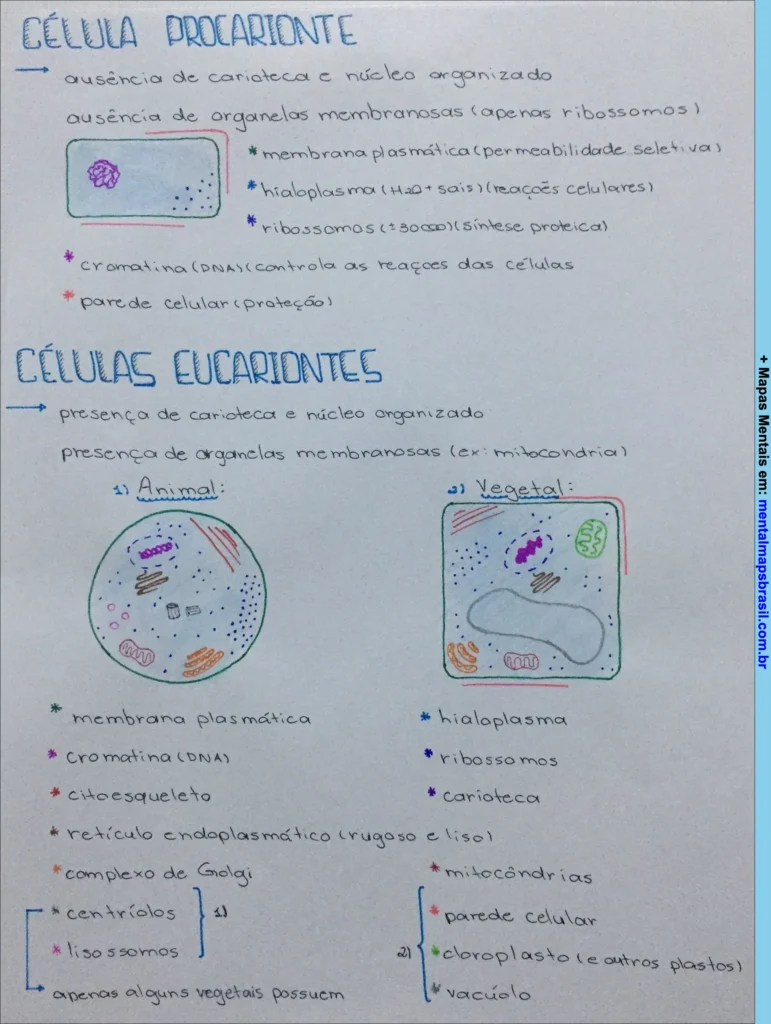 CÉLULA PROCARIONTE
→ ausência de carioteca e núcleo organizado
ausência de organelas membranosas (apenas ribossomos)
* membrana plasmática (permeabilidade seletiva)
* hialoplasma (H2O + sais) (reações celulares)
* ribossomos (±30000) (síntese proteica)
* cromatina (DNA) (controla as reações das células
* parede celular (proteção)
CÉLULAS EUCARIONTES
→ presença de carioteca e núcleo organizado
presença de organelas membranosas (ex: mitocondria)
1) Animal:
2) Vegetal:
* membrana plasmática
* cromatina (DNA)
* citoesqueleto
* hialoplasma
* ribossomos
* carioteca
* retículo endoplasmático (rugoso e liso)
* complexo de Golgi
* centríolos
* lisossomos
1)
apenas alguns vegetais possuem
* mitocôndrias
2)
* parede celular
* cloroplasto (e outros plastos)
* vacúolo
+ Mapas Mentais em: mentalmapsbrasil.com.br